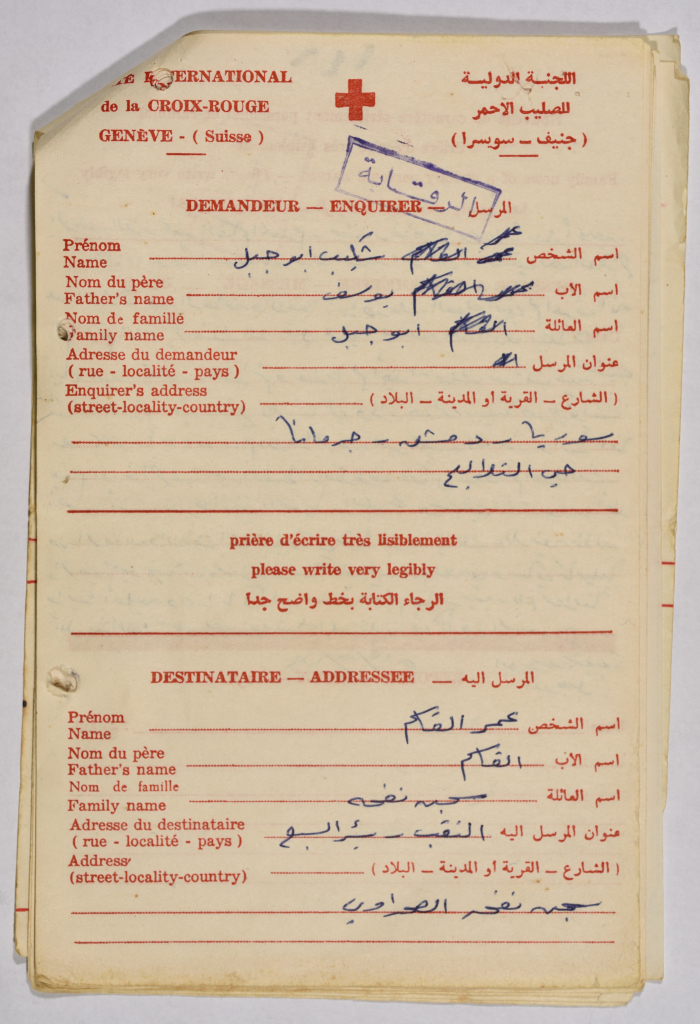 INTERNATIONAL
اللجنة الدولية
de la CROIX-ROUGE
للصليب الأحمر
GENÈVE - ( Suisse )
( جنيف – سويسرا )
الرقابة
DEMANDEUR — ENQUIRER — المرسل
Prénom
Name
اسم الشخص
شكيب ابو جبل
Nom du père
Father's name
اسم الأب
يوسف
Nom de famille
Family name
اسم العائلة
ابو جبل
Adresse du demandeur
( rue - localité - pays )
عنوان المرسل
Enquirer's address
(street-locality-country)
( الشارع – القرية أو المدينة – البلاد )
سوريا - دمشق - جرمانا
حي
prière d'écrire très lisiblement
please write very legibly
الرجاء الكتابة بخط واضح جدا
DESTINATAIRE — ADDRESSEE — المرسل اليه
Prénom
Name
اسم الشخص
عمر القاسم
Nom du père
Father's name
اسم الأب
القاسم
Nom de famille
Family name
اسم العائلة
سجن نفحه
Adresse du destinataire
( rue - localité - pays )
عنوان المرسل اليه
النقب - بئر السبع
Address
(street-locality-country)
( الشارع – القرية أو المدينة – البلاد )
سجن نفحه الصحراوي